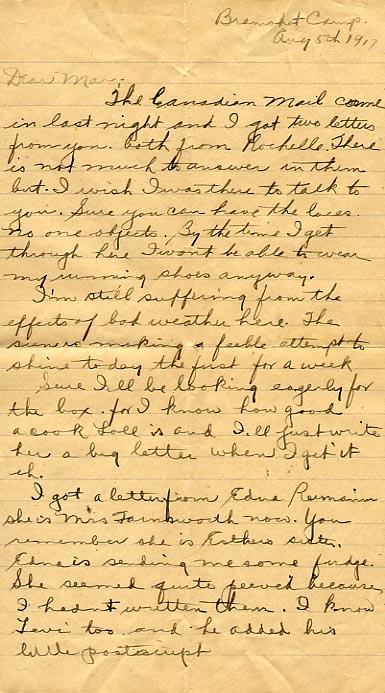 Bramshot Camp.
Aug 5th 1917
Dear Mae:
The Canadian Mail came
in last night and I got two letters
from you. both from Rochelle. There
is not much to answer in them
but I wish I was there to talk to
you. Sure you can have the laces.
no one objects. By the time I get
through here I wont be able to wear
my running shoes anyway.
I'm still suffering from the
effects of bad weather here. The
sun is making a feeble attempt to
shine to day the first for a week
Sure I'll be looking eagerly for
the box. for I know how good
a cook Loll is and I'll just write
her a big letter when I get it
eh.
I got a letter from Edna
she is Mrs Farnsworth now. You
remember she is Esthers sister.
Edna is sending me some fudge.
She seemed quite peeved because
I hadnt written them. I know
Levi too and he added his
little postscript